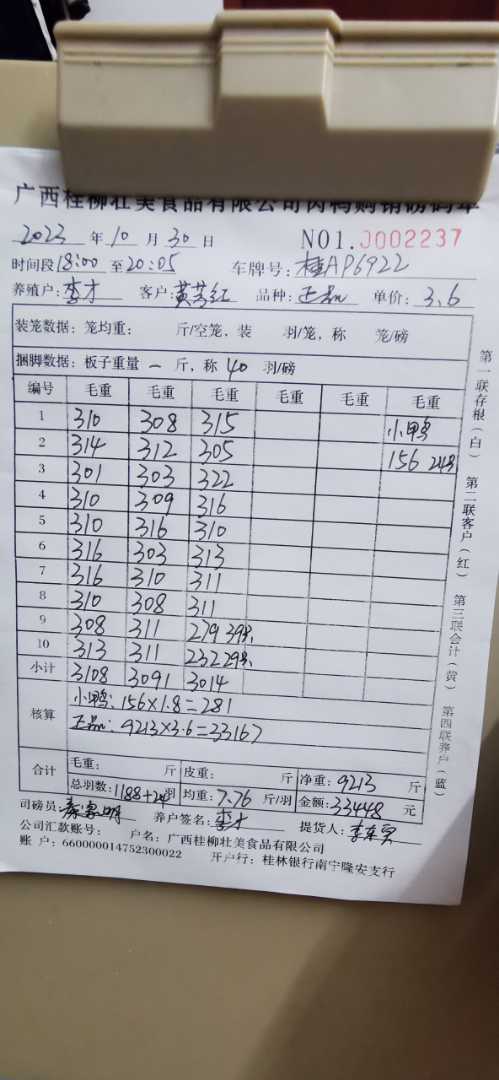 广西桂柳壮美食品有限公司肉鸭购销磅码单
2023 年 10 月 30 日 NO1.0002237
时间段 18:00 至 20:05 车牌号: 桂AP6922
养殖户: 李才 客户: 黄芳红 品种: 正品 单价: 3.6
装笼数据: 笼均重: 斤/空笼, 装 羽/笼, 称 笼/磅
捆脚数据: 板子重量 一 斤, 称 40 羽/磅
编号 毛重 毛重 毛重 毛重 毛重 毛重
1 310 308 315 小鸭
2 314 312 305 156 24羽
3 301 303 322
4 310 309 316
5 310 316 310
6 316 303 313
7 316 310 311
8 310 308 311
9 308 311 279 39羽
10 313 311 232 29羽
小计 3108 3091 3014
核算 小鸭: 156×1.8=281
正品: 9213×3.6=33167
合计 毛重: 斤 皮重: 斤 净重: 9213 斤
总羽数: 1188+24 羽 均重: 7.76 斤/羽 金额: 33448 元
司磅员: 养户签名: 李才 提货人: 李
公司汇款账号: 户名: 广西桂柳壮美食品有限公司
账 户: 660000014752300022 开户行: 桂林银行南宁隆安支行
第一联存根(白) 第二联客户(红) 第三联会计(黄) 第四联养户(蓝)